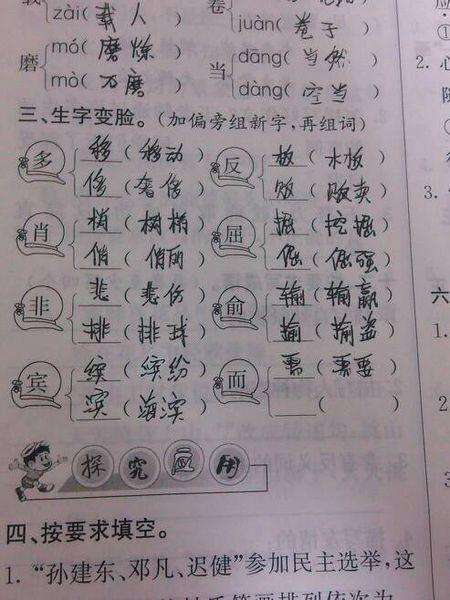 zài( 载人 ) juàn( 卷子 )
磨 mó( 磨炼 ) 当 dāng( 当然 )
mò( 磨 ) dàng( 空当 )
三、生字变脸。(加偏旁组新字,再组词)
多 移 ( 移动 ) 反 板 ( 板 )
侈 ( 奢侈 ) 贩 ( 贩卖 )
肖 梢 ( 树梢 ) 屈 掘 ( 挖掘 )
俏 ( 俏丽 ) 倔 ( 倔强 )
非 悲 ( 悲伤 ) 俞 输 ( 输赢 )
排 ( 排球 ) 揄 ( 揄盗 )
宾 缤 ( 缤纷 ) 而 需 ( 需要 )
滨 ( 海滨 ) ( )
探究应用
四、按要求填空。
1. “孙建东、邓凡、迟健”参加民主选举,这